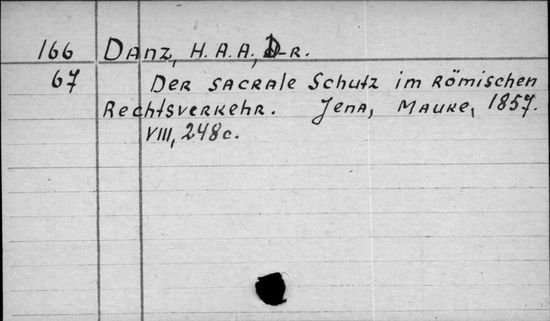 166 Danz, H. A. A., D-r.
67 Der sacrale Schutz im Römischen
Rechtsverkehr. Jena, Mauke, 1857.
VIII, 248 c.